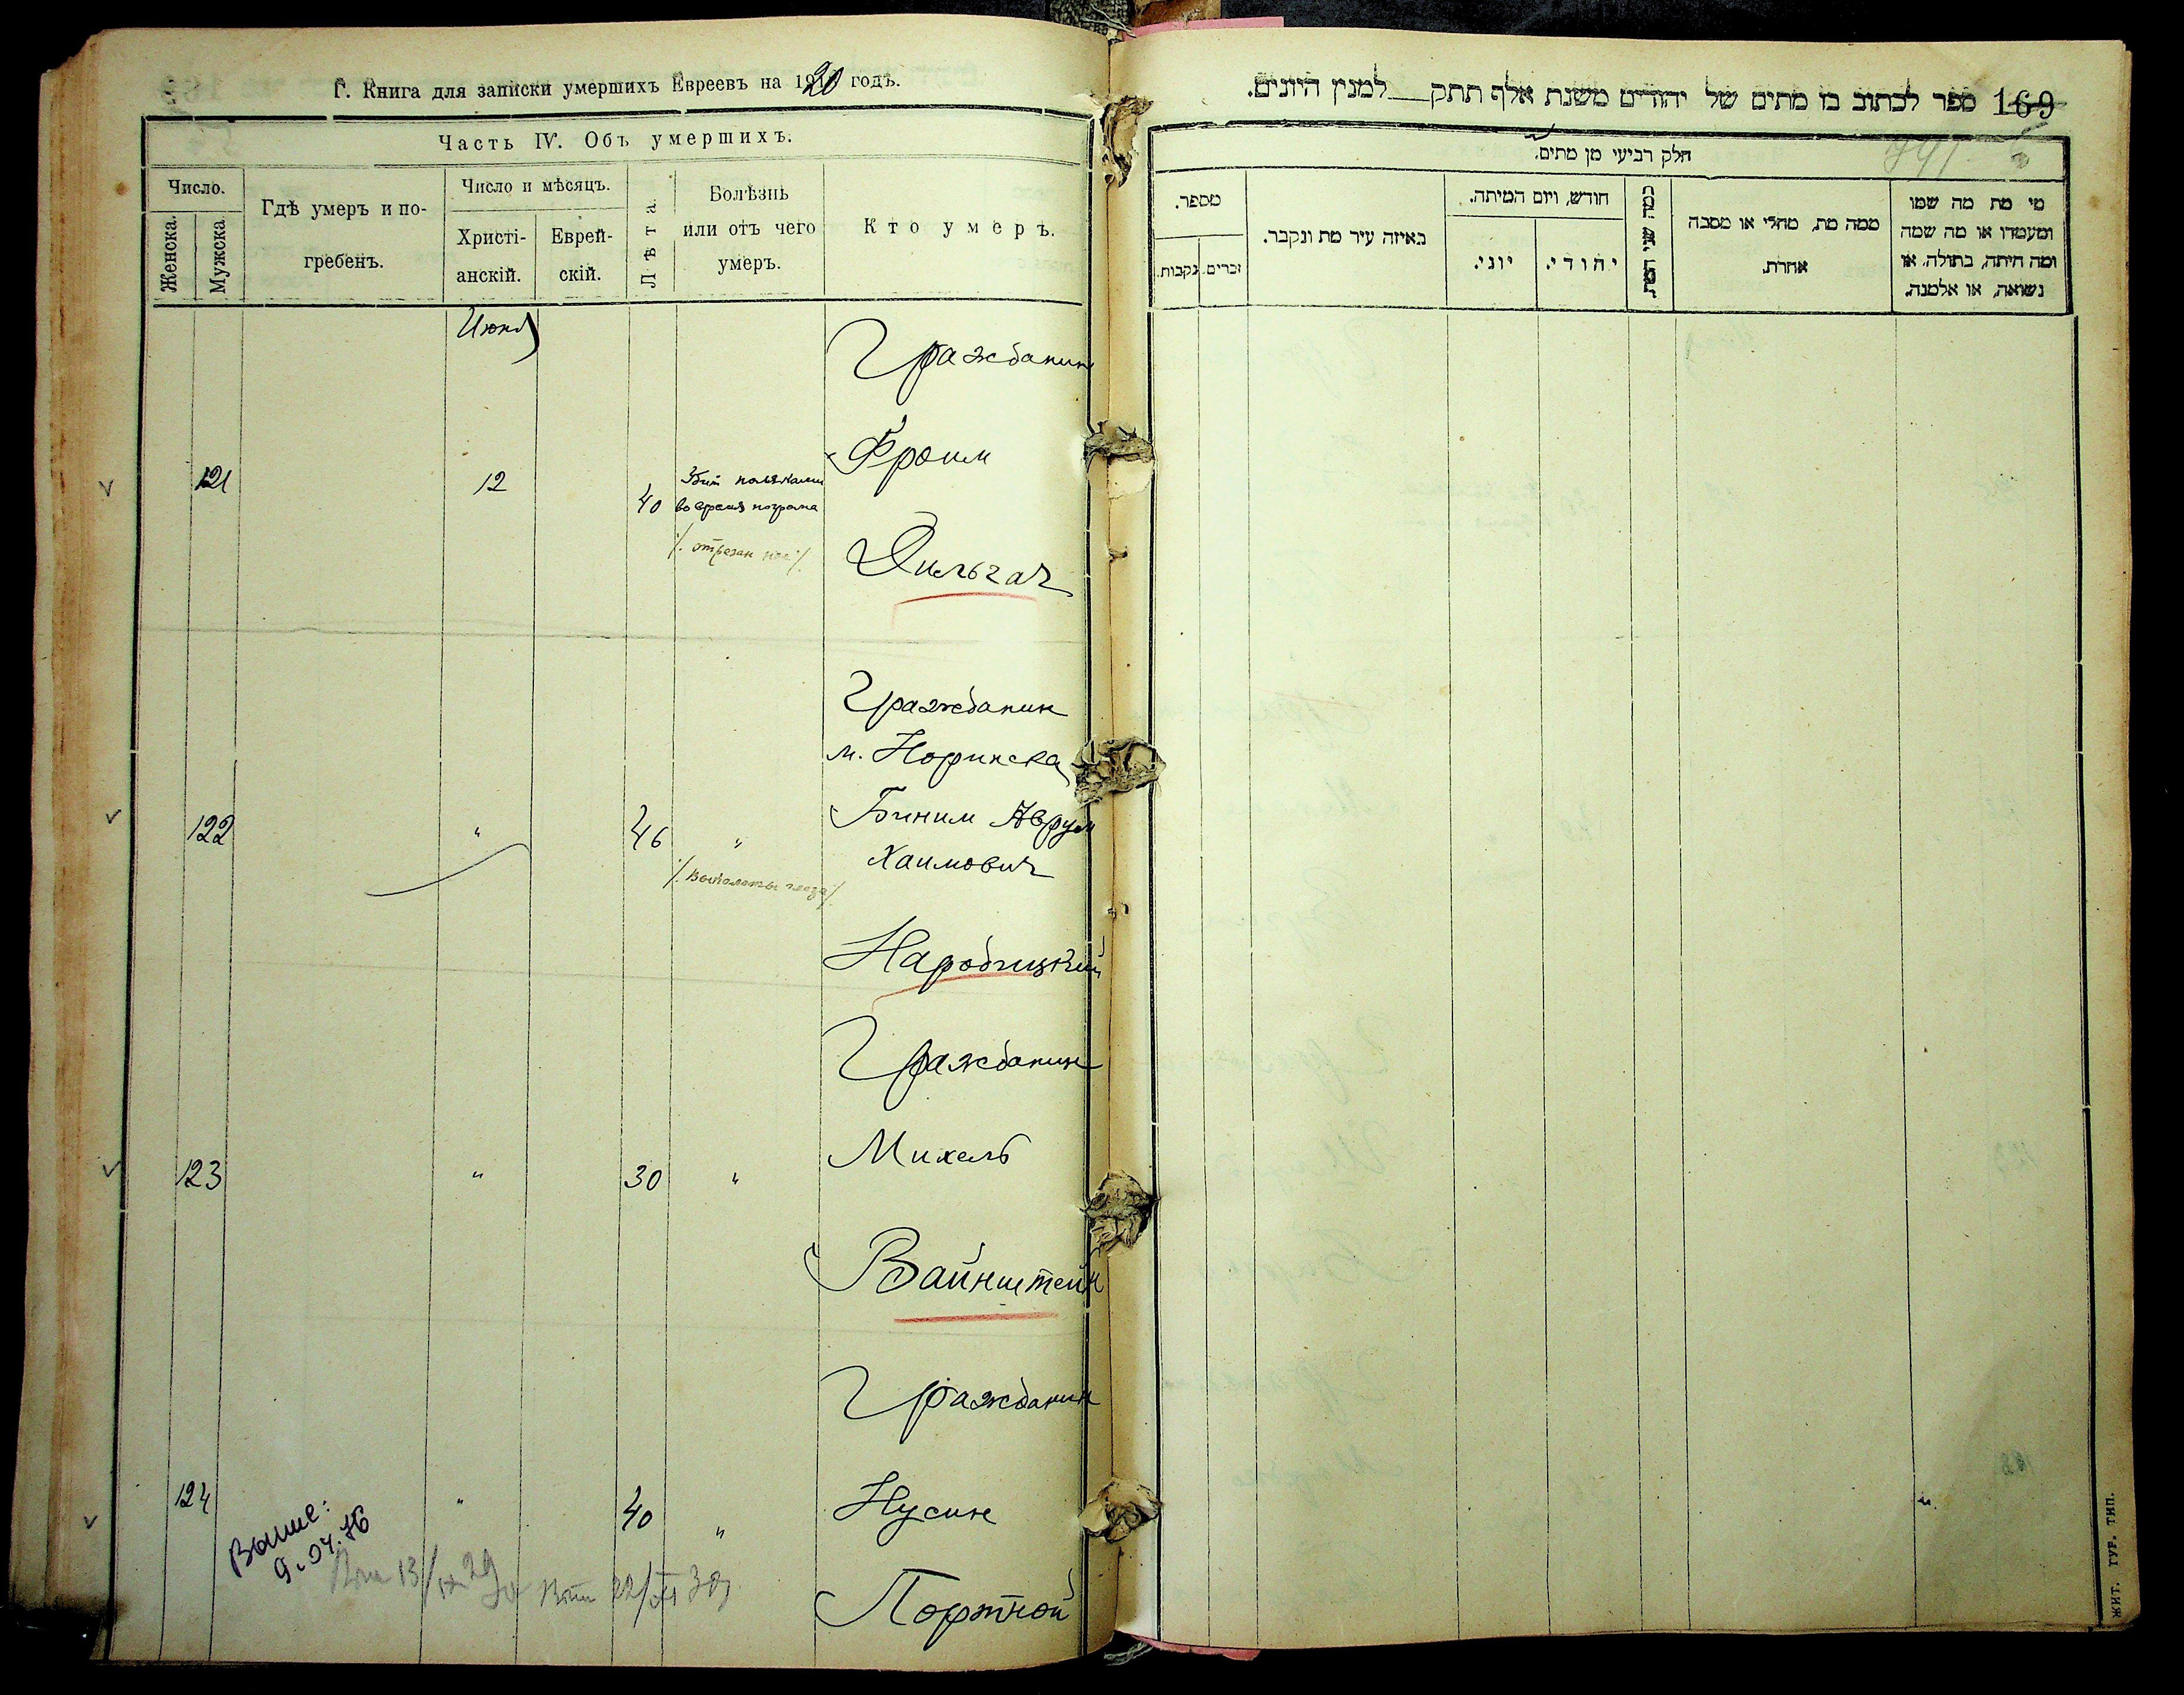 Г. Книга для записки умершихъ Евреевъ на 1920 годъ.
Часть IV. Объ умершихъ.
Число.
Женска.
Мужска.
Гдѣ умеръ и по-
гребенъ.
Число и мѣсяцъ.
Христі-
анскій.
Еврей-
скій.
Лѣта.
Болѣзнь
или отъ чего
умеръ.
Кто умеръ.
Июнь
Гражданин
Фроим
121
12
40
Убит поляками
во время погрома
/. отрезан нос /.
Дильгач
Гражданин
м. Норинска
122
"
46
"
Биним Аврум
Хаимович
/. Выколоты глаза /.
Народицкий
Гражданин
Михель
123
"
30
"
Вайнштейн
Гражданин
124
"
40
"
Нусин
Портной
9.04.76
13/IX 29
22/XI 30
169
ספר לכתוב בו מתים של יהודים משנת אלף תתק למנין היונים.
חלק רביעי מן מתים.
מספר.
נקבות.
זכרים.
באיזה עיר מת ונקבר.
חודש, ויום המיתה.
יוני.
יהודי.
כמה שני המת
ממה מת, מחלי או מסבה
אחרת.
מי מת מה שמו
ומעמדו או מה שמה
ומה היתה, בתולה, או
נשואה, או אלמנה.
ЖИТ. ГУР. ТИП.